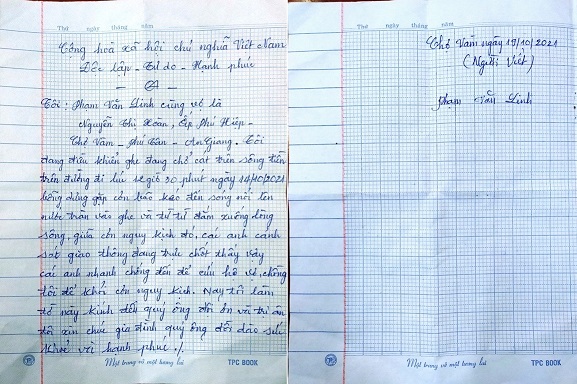 Thứ ngày tháng năm
Cộng hoà xã hội chủ nghĩa Việt Nam
Độc lập - Tự do - Hạnh phúc
Tôi : Phạm Văn Linh cùng vợ là
Nguyễn Thị Hoàn, Ấp Phú Hiệp -
Chợ Vàm - Phú Tân - An Giang. Tôi
đang điều khiển ghe đang chở cát trên sông tiền
trên đường đi lúc 12 giờ 30 phút ngày 14/10/2021
bỗng dưng gặp cơn bão kéo đến song nổi lên
nước tràn vào ghe và từ từ đắm xuống lòng
sông, giữa cơn nguy kịch đó, các anh cảnh
sát giao thông đang trực chốt thấy vậy
các anh nhanh chóng đến để cứu hộ vợ, chồng
tôi để khỏi cơn nguy kịch. Nay tôi làm
tờ này kính đến quý ông đôi ơn và tri ân
tôi xin chúc gia đình quý ông dồi dào sức
khoẻ và hạnh phúc ./.
Một trang vở một tương lai
TPC BOOK
Thứ ngày tháng năm
Chợ Vàm ngày 19/10/2021
(Người Viết)
Phạm Văn Linh
Một trang vở một tương lai
TPC BOOK